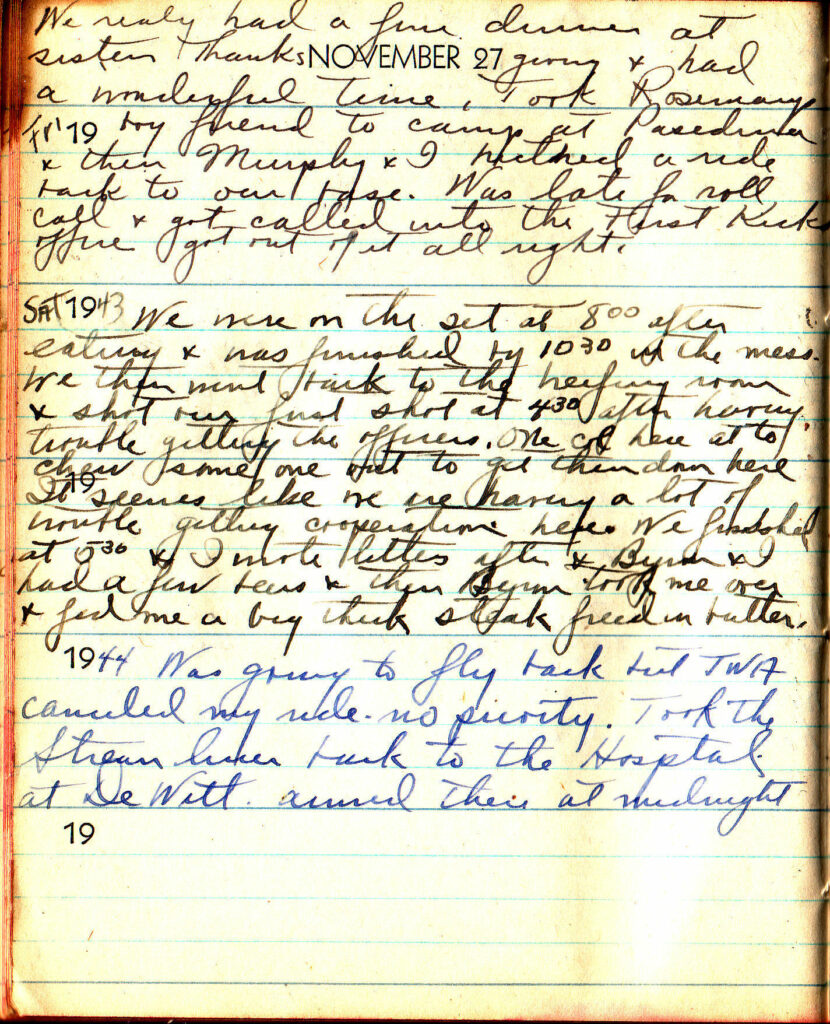 We realy had a fine dinner at
sisters Thanks NOVEMBER 27 giving & had
a wonderful time, Took Rosemarys
Fri 19 boy friend to camp at Pasedina
& then Murphy & I hitched a ride
back to our base. Was late for roll
call & got called into the First Kicks
office got out of it all right.
SAT 1943 We were on the set at 8 00 after
eating & was finished by 10 30 in the mess.
We then went back to the briefing room
& shot our first shot at 4 30 after having
trouble getting the officers. One col here at to
chew some one out to get them down here
19
It seems like we are having a lot of
trouble getting cooperation here We finished
at 5 30 & I wrote letters after & Byron & I
had a few beers & then Byron took me over
& fed me a big thick steak fried in butter.
1944 Was going to fly back but TWA
canceled my ride. no priority. Took the
Stream liner back to the Hospital
at De Witt. arrived there at midnight
19